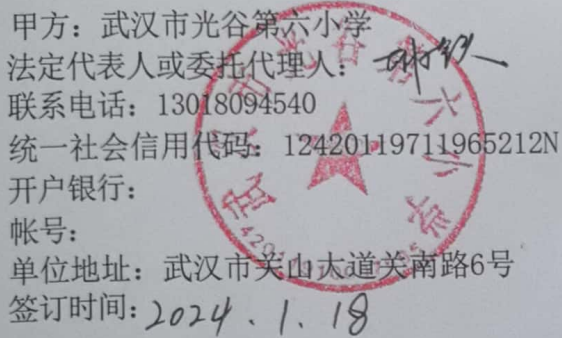 甲方：武汉市光谷第六小学
法定代表人或委托代理人：
联系电话：13018094540
统一社会信用代码：12420119711965212N
开户银行：
帐号：
单位地址：武汉市关山大道关南路6号
签订时间：2024.1.18
武汉市光谷第六小学